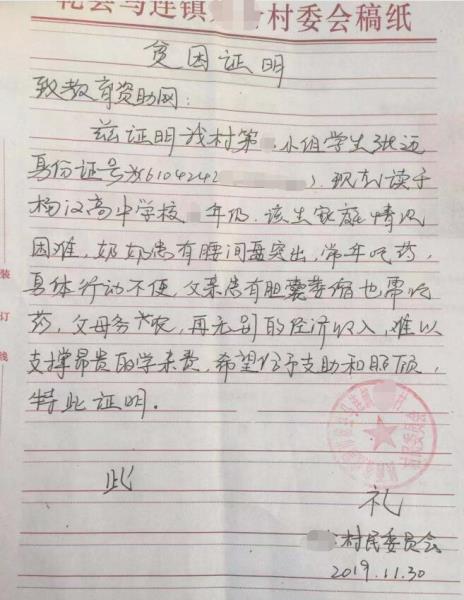 礼会马连镇 村委会稿纸
贫困证明
致教育资助网：
兹证明我村第 小组学生张迈
身份证号为(6104242 ), 现就读于
杨汉高中学校 年级. 该生家庭情况
困难, 奶奶患有腰间盘突出, 常年吃药,
身体行动不便, 父亲患有胆囊萎缩也需吃
药, 父母务农, 再无别的经济收入, 难以
支撑昂贵的学杂费, 希望给予支助和照顾,
特此证明.
此
礼
村民委员会
2019.11.30
装
订
线